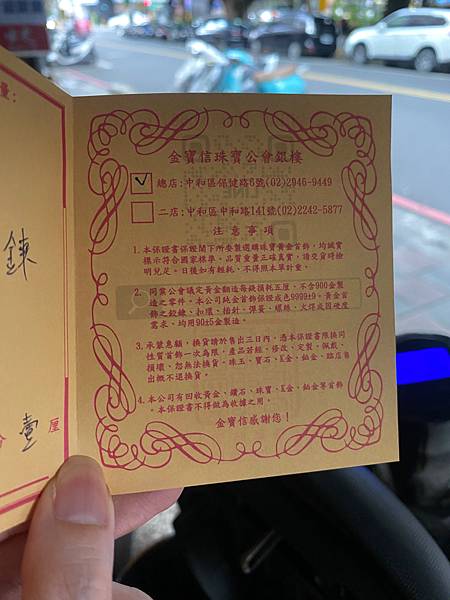 量:
鍊
壹 厘
金寶信珠寶公會銀樓
✓ 總店:中和區保健路6號(02)2946-9449
二店:中和區中和路141號(02)2242-5877
注意事項
1. 本保證書保證閣下所委製選購珠寶黃金首飾,均誠實
標示符合國家標準。品質重量正確真實,請交貨時檢
明兒足。日後如有輕耗,不得照本單計量。
2. 同業公會議定黃金翻造每錢損耗五厘,不含900金製
造之零件。本公司純金首飾保證成色9999±9。黃金首
飾之銲線、扣環、插針、彈簧、螺絲、火焊或因硬度
需求、均用90±5金製造。
3. 承蒙惠顧,換貨請於售出三日內,憑本保證書限換同
性質首飾一次為限,產品若經、修改、定製、佩戴、
損壞,恕無法換貨。珠玉、寶石、K金、鉑金、臨店售
出概不退換貨。
4. 本公司有回收黃金、鑽石、珠寶、K金、鉑金等首飾
。本保證書不得做為收據之用。
金寶信感謝您!